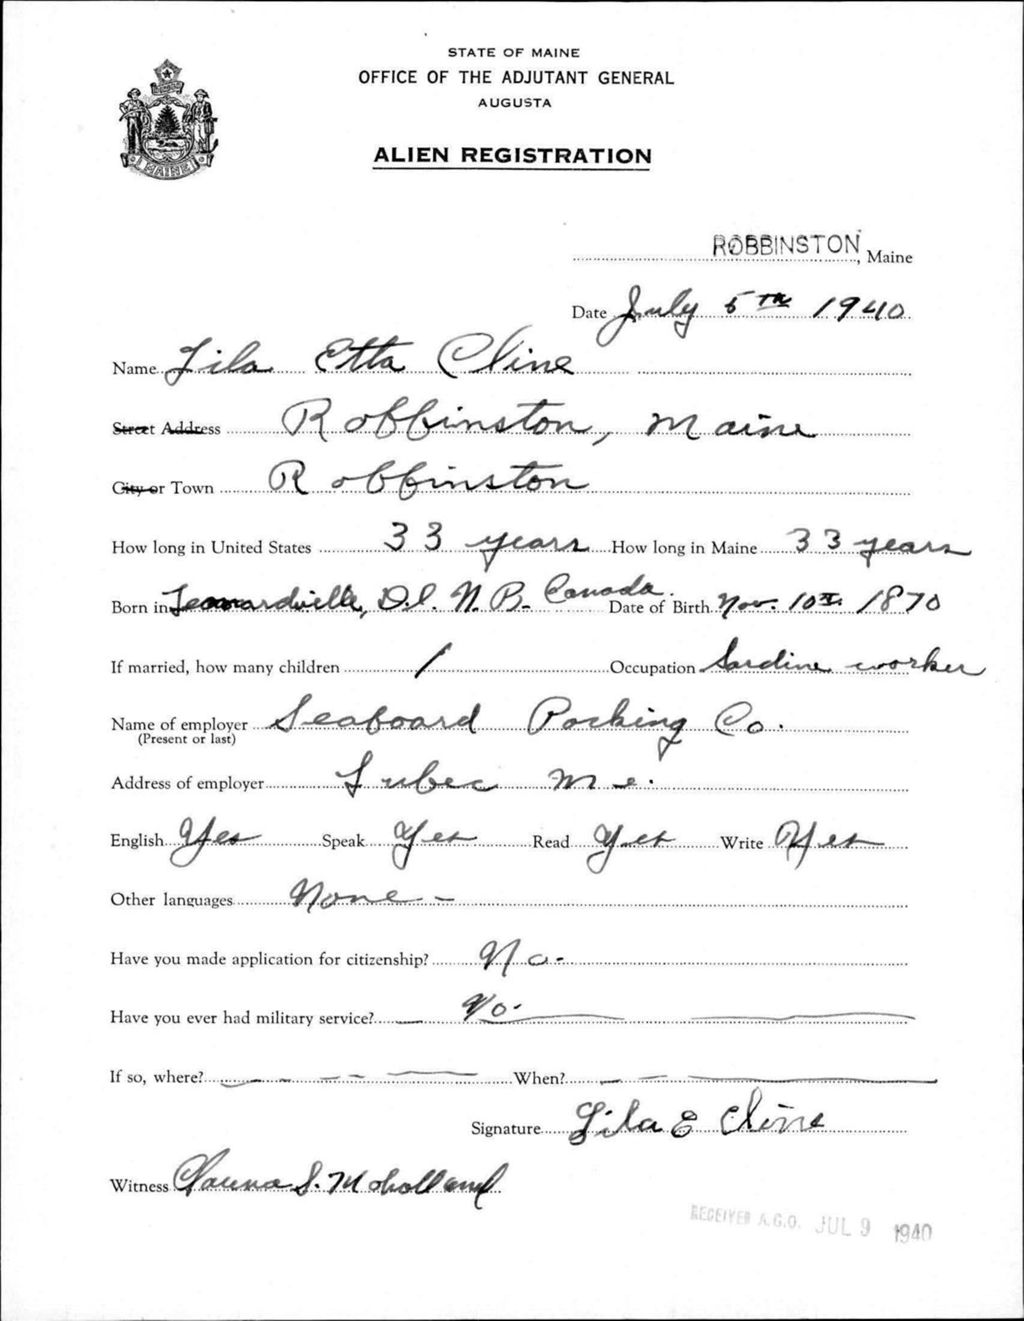 STATE OF MAINE
OFFICE OF THE ADJUTANT GENERAL
AUGUSTA
ALIEN REGISTRATION
MAINE
ROBBINSTON, Maine
Date July 5th 1940
Name Lila Etta Cline
Street Address Robbinston, Maine
City or Town Robbinston
How long in United States 33 years How long in Maine 33 years
Born in Leonardville, D.I. N.B. Canada. Date of Birth Nov. 10th. 1870
If married, how many children 1 Occupation Sardine worker
Name of employer Seaboard Packing Co.
(Present or last)
Address of employer Lubec Me.
English Yes Speak Yes Read Yes Write Yes
Other languages None -
Have you made application for citizenship? No -
Have you ever had military service? No -
If so, where? When?
Signature Lila E Cline
Witness S. Moholland
RECEIVED A.G.O. JUL 9 1940